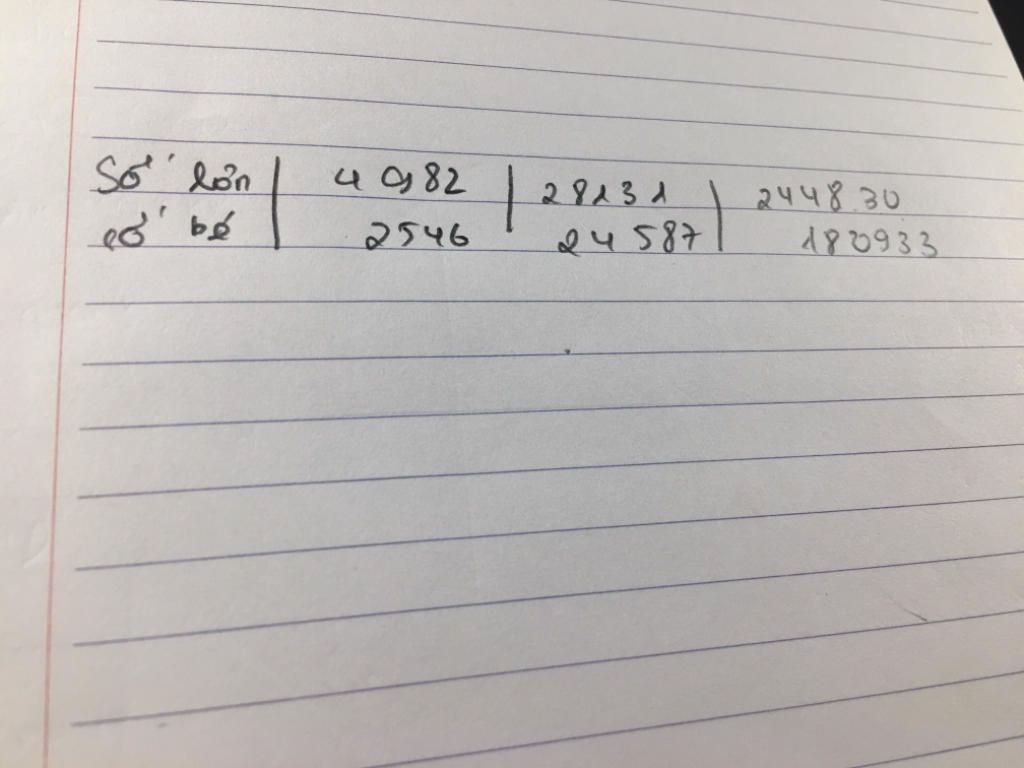 Số lớn | 4982 | 28131 | 244830
số bé | 2546 | 24587 | 180933